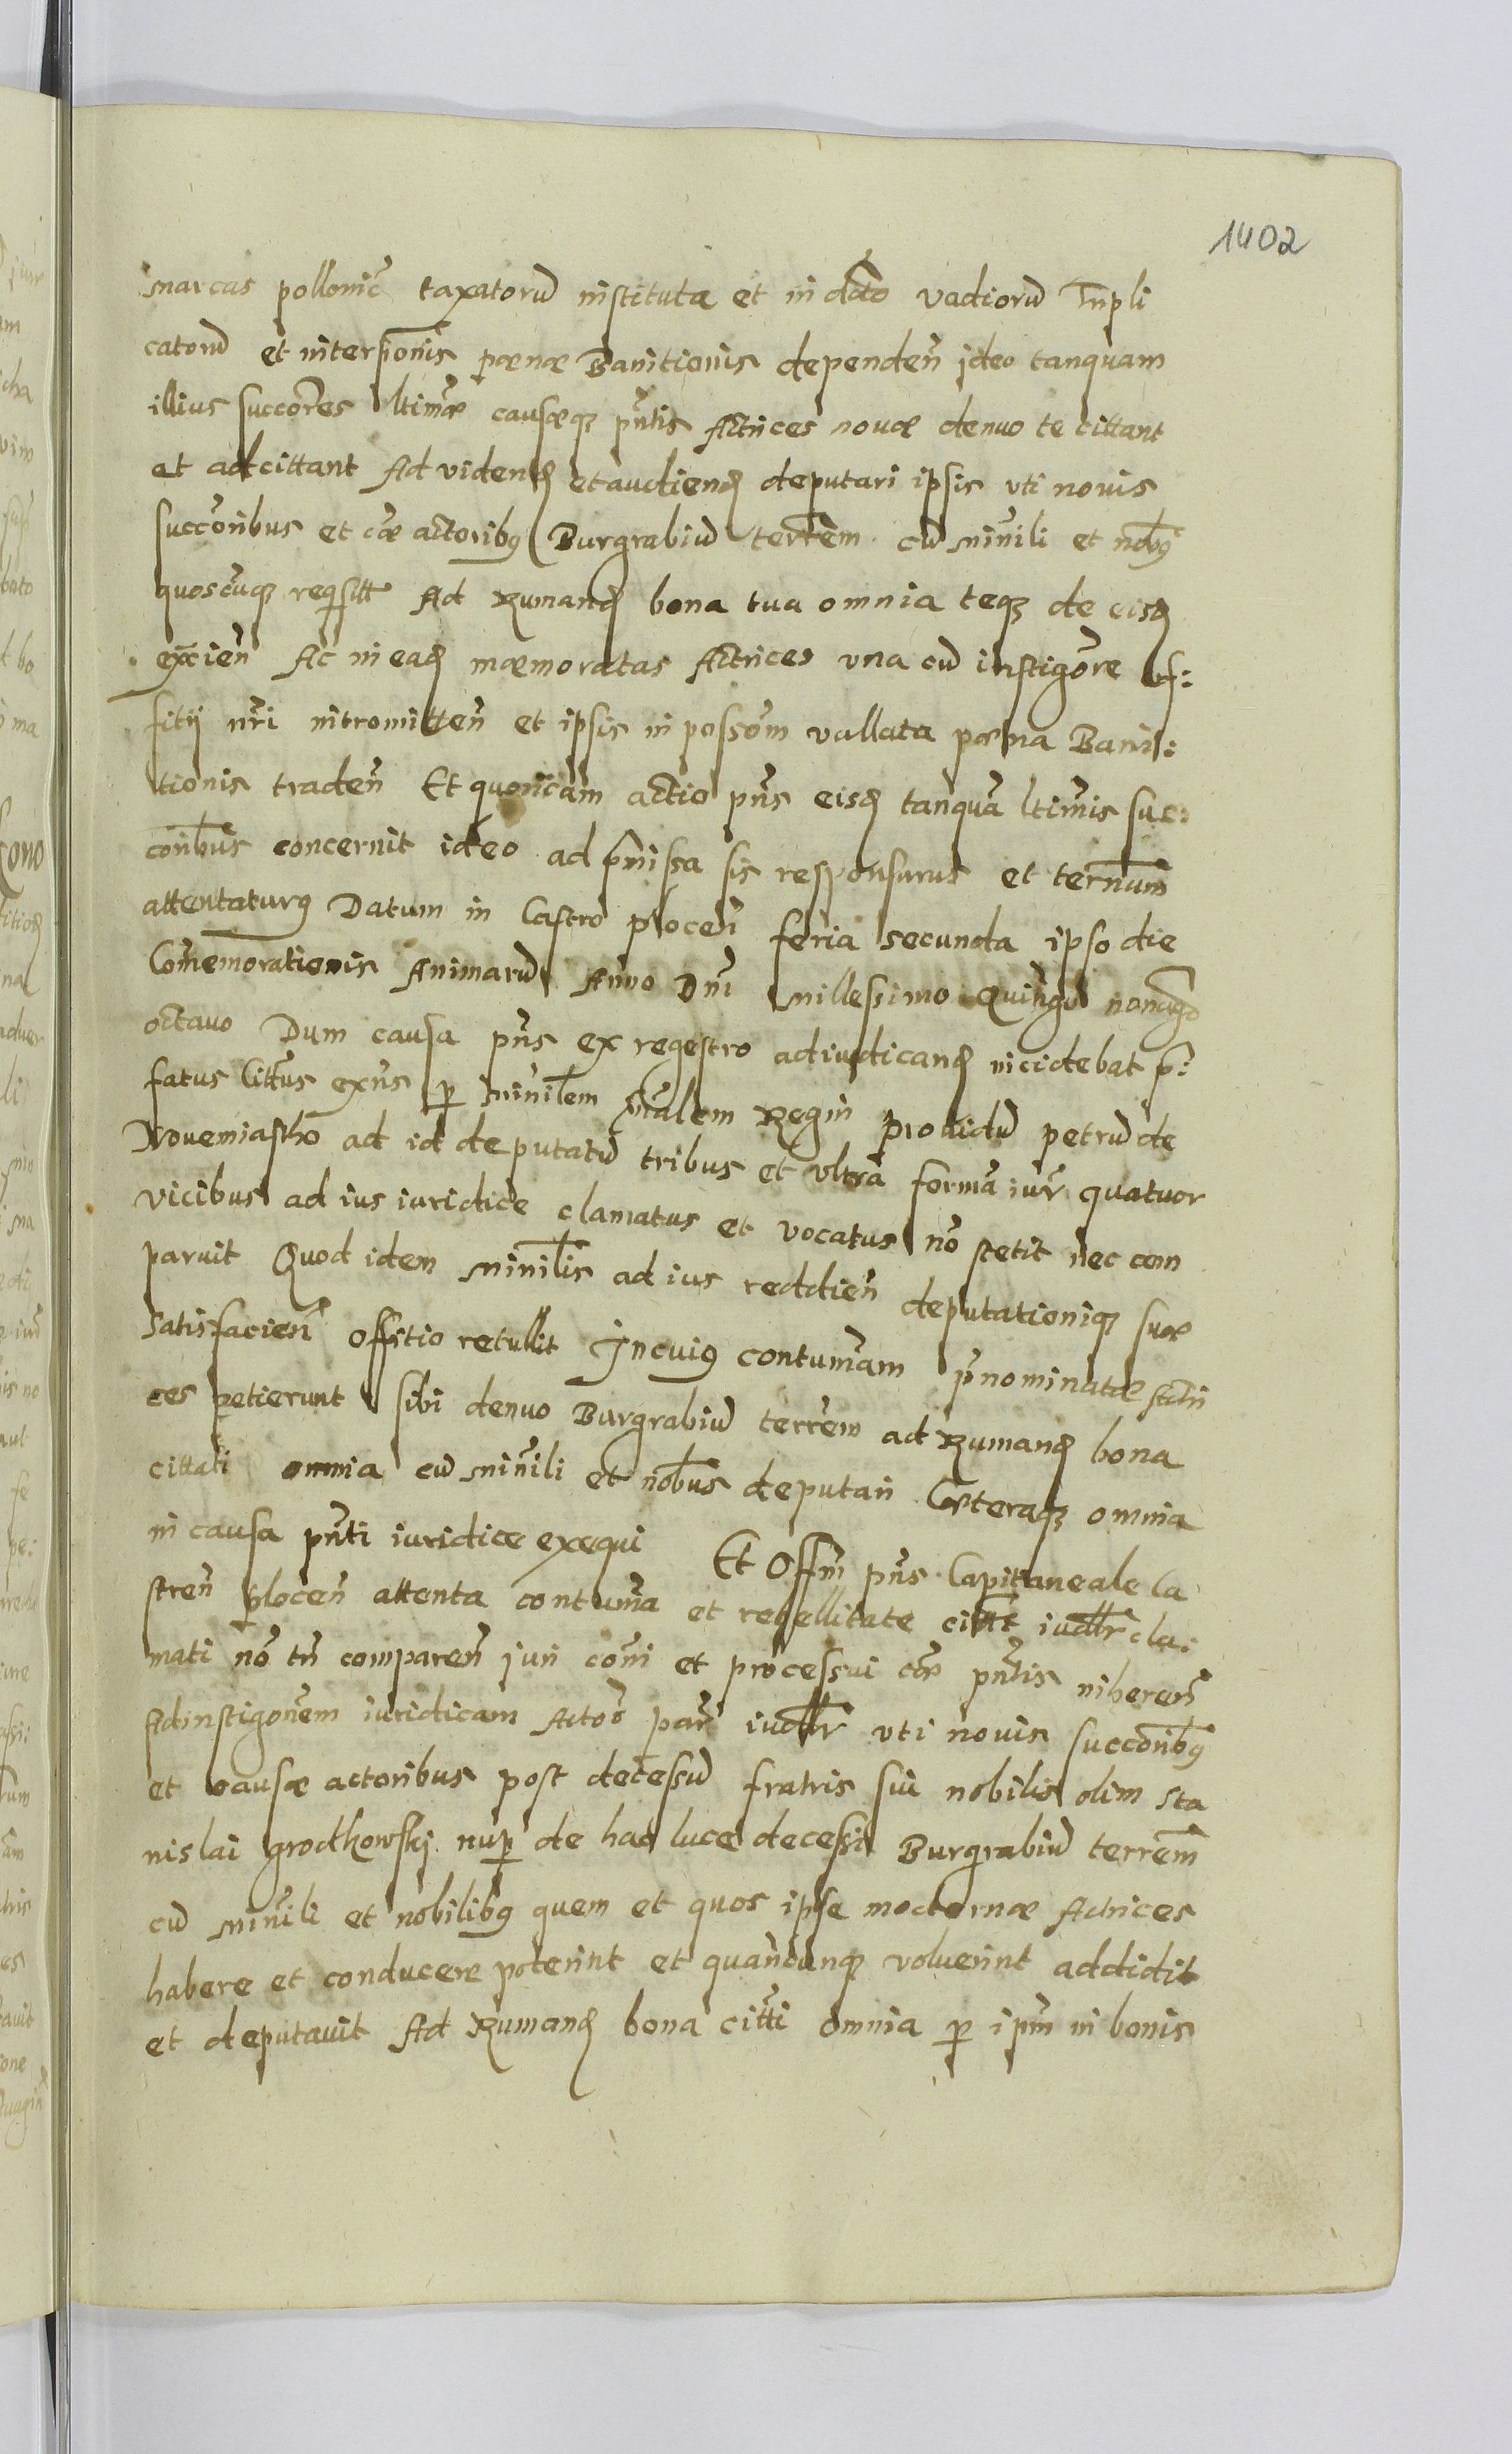 1402
marcas pollonic̃ taxatorũ instituta et in dc̃to vadiorũ Tripli
catorũ et interp̃onis pœnæ Banitionis dependeñ ideo tanquam
illius succores̃ ltimæ̃ causæq; pñtis Actrices nouæ denuo te cittant
et adcittant Ad videnđ et audienđ deputari ipsis vti nouis
succor̃ibus et cæ̃ actorib9 Burgrabiũ terrem̃ cũ miñili et nob̃9
quoscũq; reqsitt Ad Rumanđ bona tua omnia teq; de eisđ
exc̃ieñ Ac in eađ mæmoratas Actrices vna cũ instigor̃e Of:
fitij nr̃i intromitteñ et ipsis in posso͂m vallata pœna Bani:
tionis tradeñ Et quonia͂m actio pñs eisđ tanquã ltimis̃ suc:
corib̃us concernit ideo ad p̃missa sis responsurus et terminũm
attentatur9 Datum in Castro ploceñ feria secunda ipso die
Com̃emorationis Animarũ Anno Dñi millessimo Quingẽ nonag̃o
octauo Dum causa pñs ex regestro adiudicanđ incidebat p̃:
fatus Citt̃us exñs p miniĩlem gñalem Regñi prouidũ petrũ de
Nouemiastho ad id deputatũ tribus et vltra formã iur̃ quatuor
vicibus ad ius iuridice clamatus et vocatus nõ stetit nec com
paruit Quod idem minil̃is ad ius reddieñ deputationiq; suæ
satisfacieñ offitio retullit In cui9 contumãm p̃nominatæ Actri
ces petierunt sibi denuo Burgrabiũ terrem̃ ad Rumanđ bona
cittati omnia cũ miñili et nob̃us deputari Cæteraq; omnia
in causa pñti iuridice exequi Et Offm̃ pñs Capitaneale Ca
streñ ploceñ attenta contumã et rebellitate citt̃i iudllr cla:
mati nõ tñ compareñ juri com̃i et processui cæ̃ pñtis inhereñ
Ad instigoñem iuridicam Acto͂ par̃ iudllr vti nouis succorib̃9
et causæ actoribus post decessũ fratris sui nobilis olim Sta
nislai grodkowskj nup de hac luce decessi Burgrabiũ terrem̃
cũ miñili et nobilib9 quem et quos ipse mocternæ Actrices
habere et conducere poterint et quandcunq; voluerint addidit
et deputauit Ad Rumanđ bona citt̃i omnia p ipm̃ in bonis